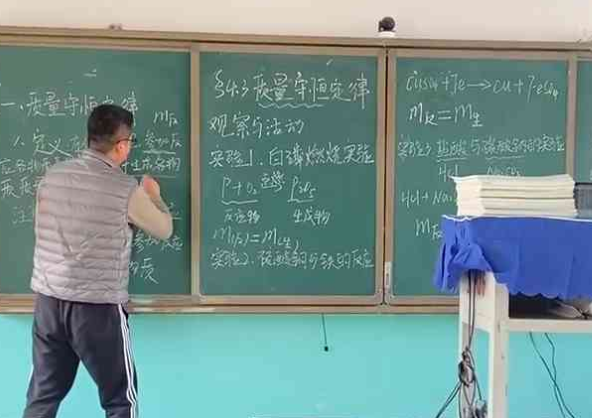 一、质量守恒定律
m反
1. 定义
参加反
应
生成
物
参加反应
质
§4.3 质量守恒定律
观察与活动
实验1. 白磷燃烧实验
P+O₂ 点燃 P₂O₅
反应物 生成物
m(反)=m(生)
实验2. 硫酸铜与铁的反应
CuSO₄+Fe→Cu+FeSO₄
m反=m生
实验3 盐酸与碳酸钠的实验
HCl
HCl+Na₂
m反